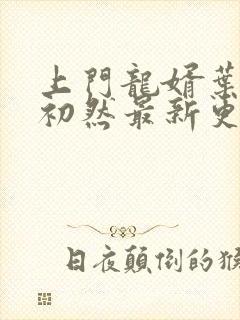 上門龍婿葉
初然最新更
日夜顛倒的猴